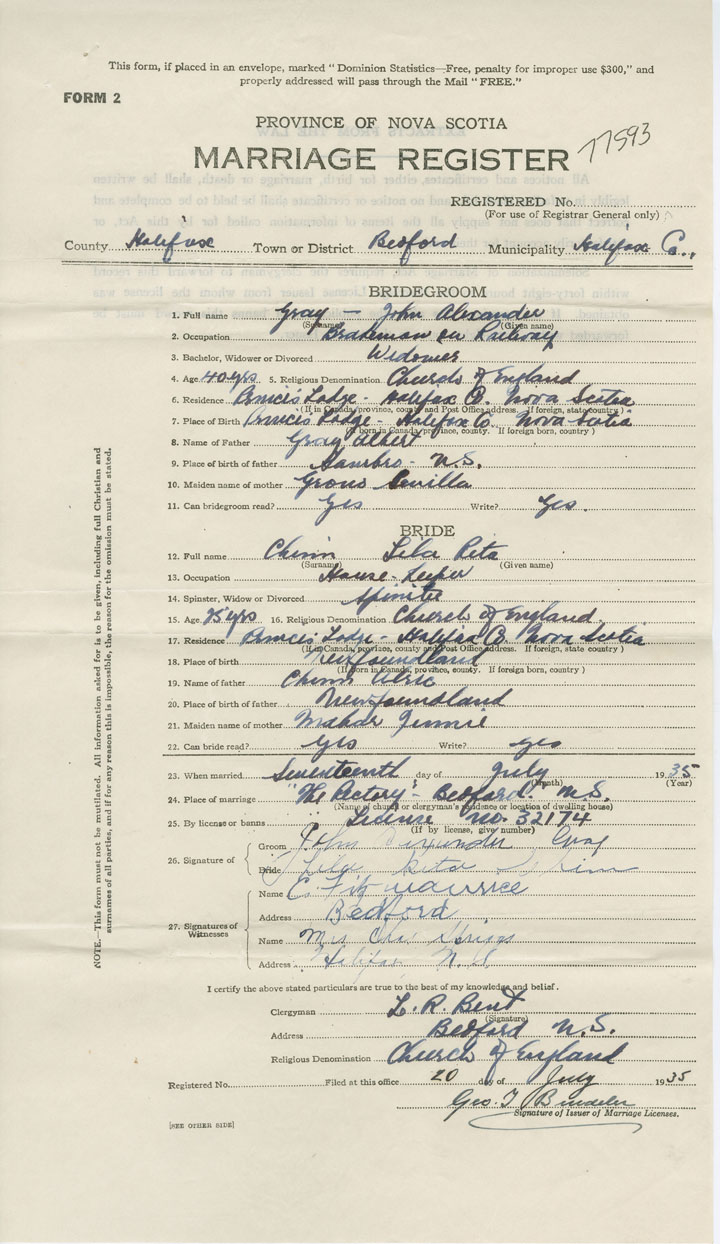 This form, if placed in an envelope, marked "Dominion Statistics—Free, penalty for improper use $300," and
properly addressed will pass through the Mail "FREE."
FORM 2
PROVINCE OF NOVA SCOTIA
MARRIAGE REGISTER 77593
REGISTERED No.
(For use of Registrar General only)
County Halifax Town or District Bedford Municipality Halifax Co.,
BRIDEGROOM
1. Full name Gray — John Alexander
(Surname) (Given name)
2. Occupation Brakeman on Railway
3. Bachelor, Widower or Divorced Widower
4. Age 40 yrs 5. Religious Denomination Church of England
6. Residence Princes Lodge - Halifax Co. Nova Scotia
(If in Canada, province, county and Post Office address. If foreign, state country)
7. Place of Birth Princes Lodge - Halifax Co. Nova Scotia
(If born in Canada, province, county. If foreign born, country)
8. Name of Father Gray Albert
9. Place of birth of father Sambro - N.S.
10. Maiden name of mother
11. Can bridegroom read? Yes Write? Yes.
BRIDE
12. Full name Chinn Lila Rita
(Surname) (Given name)
13. Occupation House-Keeper
14. Spinster, Widow or Divorced Spinster
15. Age 25 yrs 16. Religious Denomination Church of England.
17. Residence Princes Lodge - Halifax Co. Nova Scotia
(If in Canada, province, county and Post Office address. If foreign, state country)
18. Place of birth Newfoundland
(If born in Canada, province, county. If foreign born, country)
19. Name of father Chinn
20. Place of birth of father Newfoundland
21. Maiden name of mother Jennie
22. Can bride read? Yes Write? Yes
23. When married Seventeenth day of July 1935
(Month) (Year)
24. Place of marriage "The Rectory - Bedford. N.S.
(Name of church or clergyman's residence or location of dwelling house)
25. By license or banns License No. 32174
(If by license, give number)
26. Signature of Groom John Alexander Gray
Bride Lila Rita Chinn
27. Signatures of Witnesses
Name C. Fitzmaurice
Address Bedford
Name Mrs
Address Halifax N.S.
I certify the above stated particulars are true to the best of my knowledge and belief.
Clergyman L. R. Bent
(Signature)
Address Bedford N.S.
Religious Denomination Church of England
Registered No. Filed at this office 20 day of July 1935
Geo. T
Signature of Issuer of Marriage Licenses.
[SEE OTHER SIDE]
NOTE.—This form must not be mutilated. All information asked for is to be given, including full Christian and
surnames of all parties, and if for any reason this is impossible, the reason for the omission must be stated.